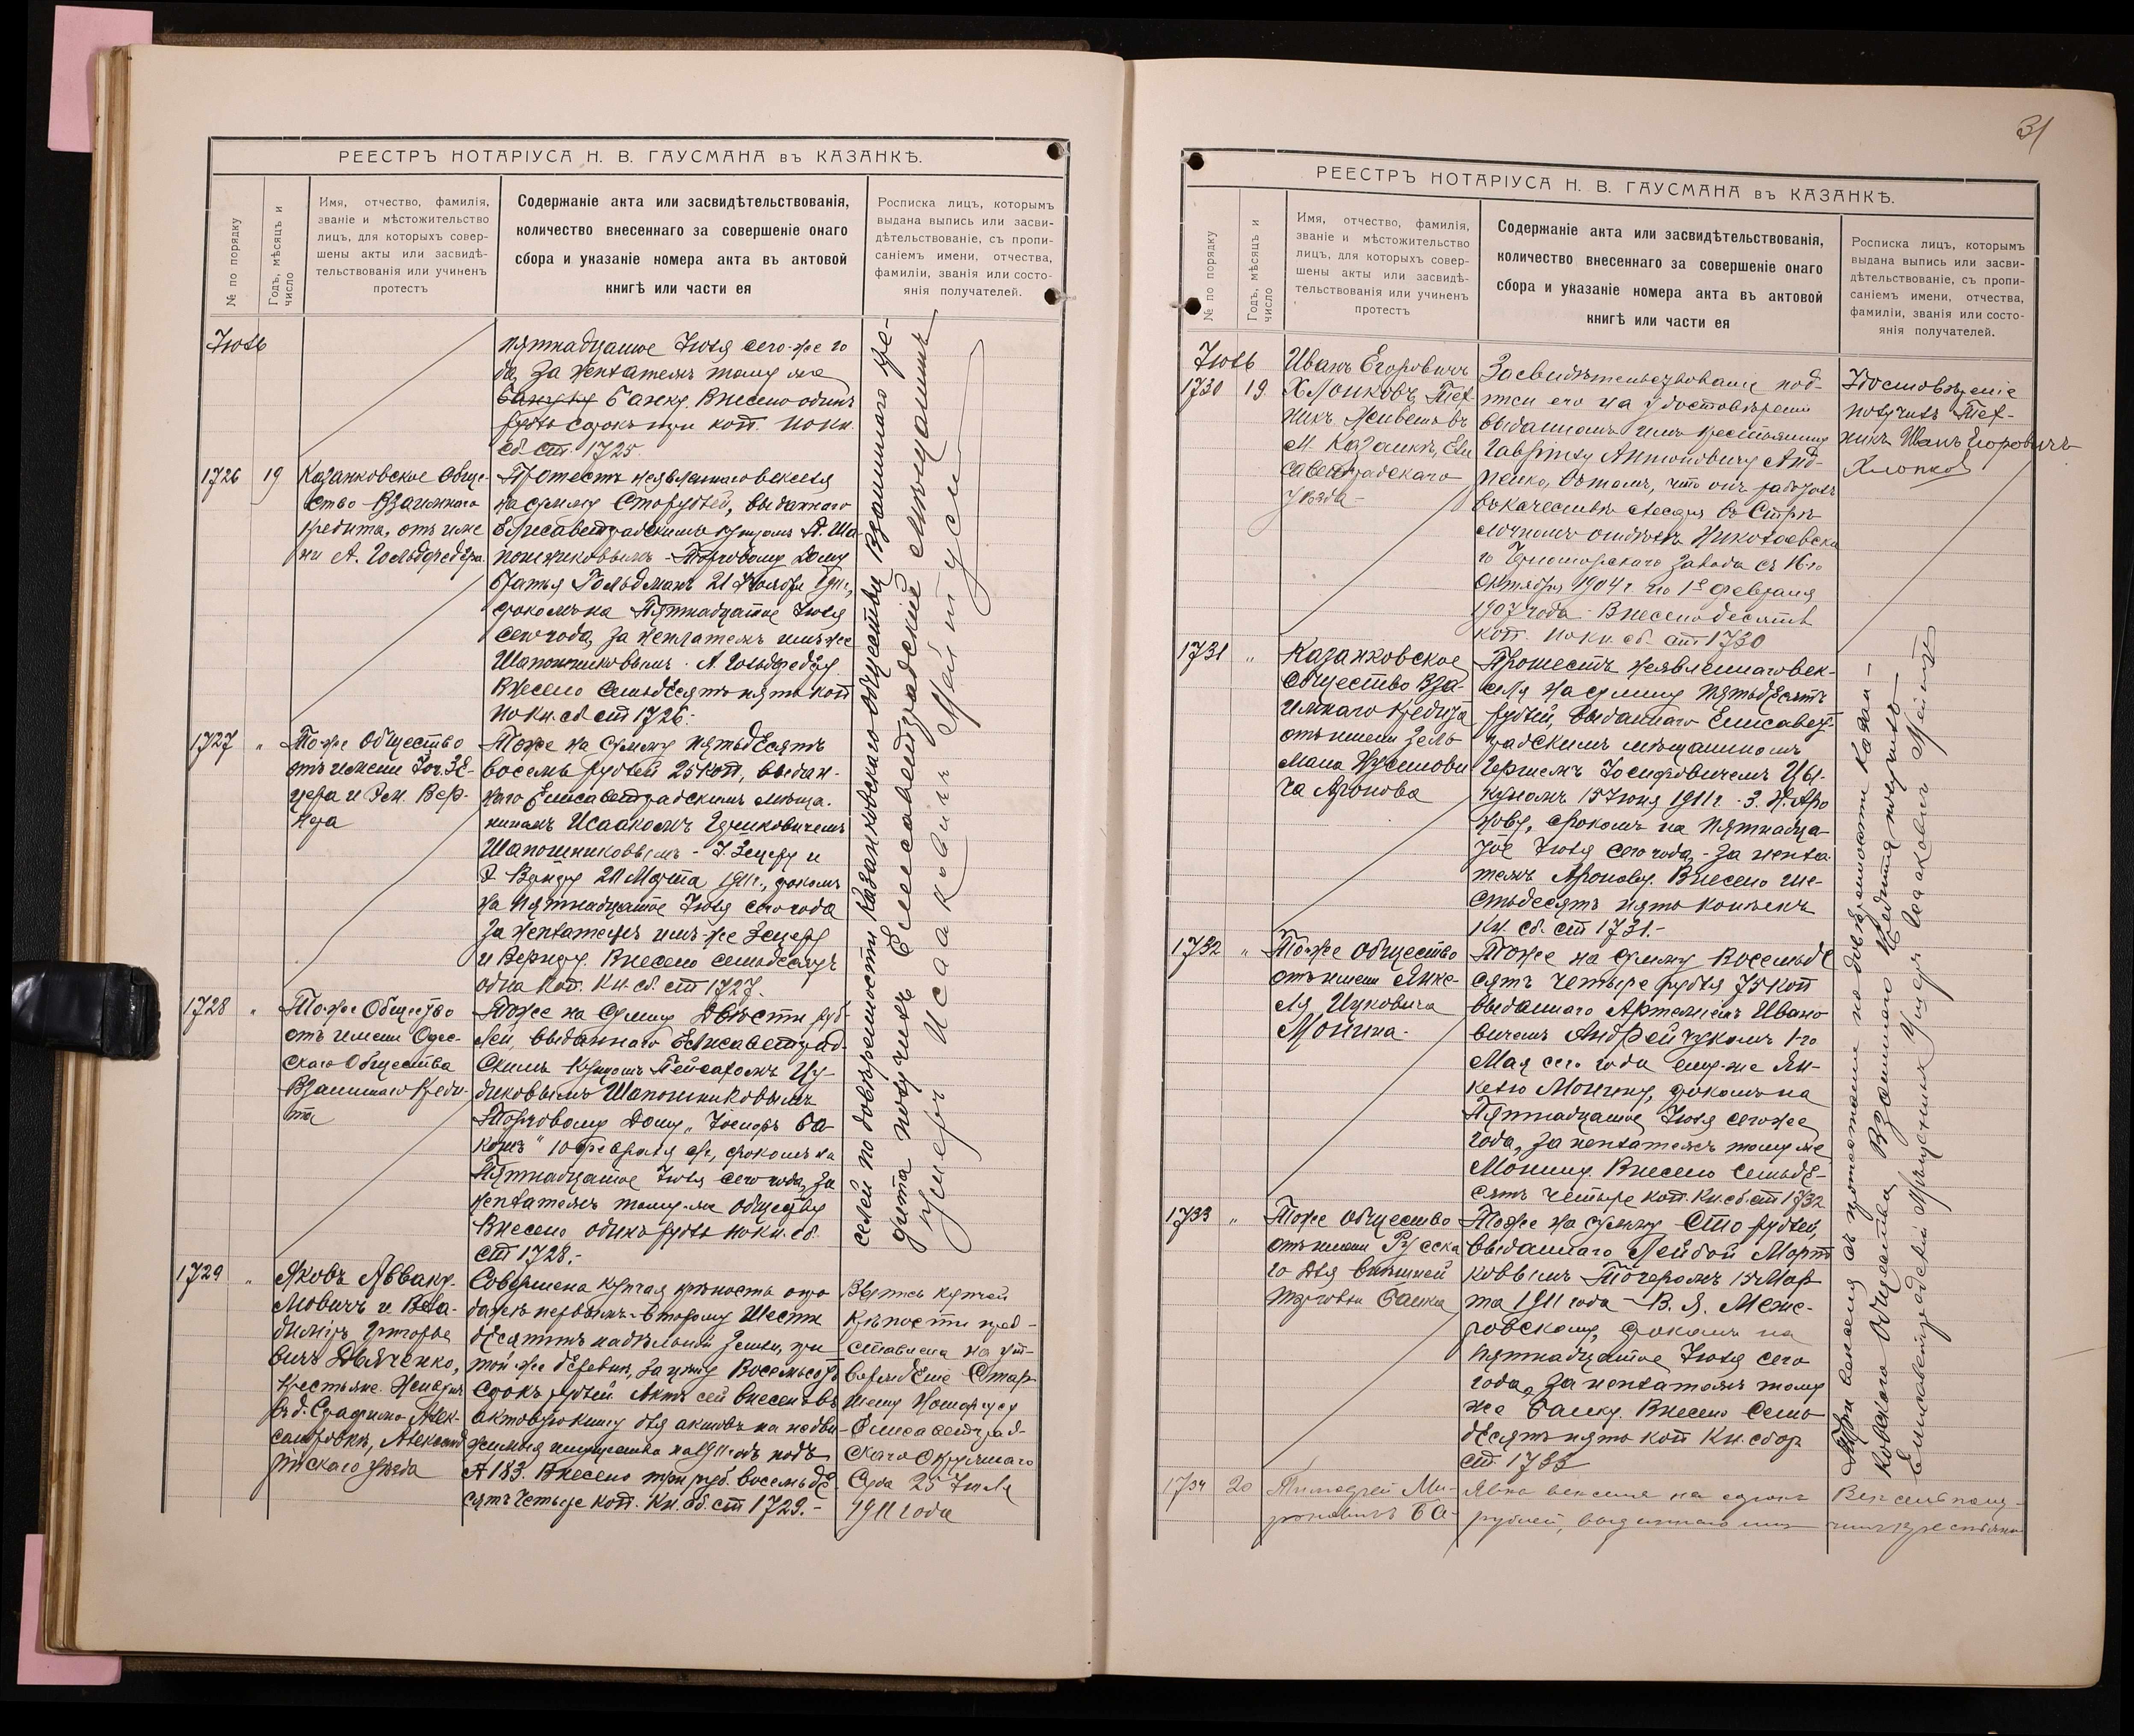 РЕЕСТРЪ НОТАРІУСА Н. В. ГАУСМАНА въ КАЗАНКѢ.
№ по порядку
Годъ, мѣсяцъ и
число
Имя, отчество, фамилія,
званіе и мѣстожительство
лицъ, для которыхъ совер-
шены акты или засвидѣ-
тельствованія или учиненъ
протестъ
Содержаніе акта или засвидѣтельствованія,
количество внесеннаго за совершеніе онаго
сбора и указаніе номера акта въ актовой
книгѣ или части ея
Росписка лицъ, которымъ
выдана выпись или засви-
дѣтельствованіе, съ пропи-
саніемъ имени, отчества,
фамиліи, званія или состо-
янія получателей.
Іюль
пятнадцатое Іюля сего-же го
да, за неплатежъ тому же
Банку. Внесено одинъ
рубль сорокъ три коп. по кн.
сб. ст. 1725.
1726 19
Казанковское Обще-
ство Взаимнаго
Кредита, отъ име
ни А. Гольдфедера
Протестъ неявленнаго векселя
на сумму Сто рублей, выданнаго
Елисаветградскимъ купцомъ А. Ша-
пошниковымъ - Торговому Дому
братья Гольдманъ 21 Ноября 1910г.,
срокомъ на Пятнадцатое Іюля
сего года, за неплатежъ имъ-же
Шапошниковымъ А. Гольдфедеру.
Внесено семьдесятъ пять коп
по кн. сб. ст 1726.
1727 "
Тоже Общество
отъ имени Іос. Зе-
цера и Эм. Вер-
нра
Тоже на сумму пятьдесятъ
восемь рублей 25 коп, выдан-
наго Елисаветградскимъ мѣща-
ниномъ Исаакомъ
Шапошниковымъ - І. Зецеру и
Э. 20 Марта 1911г., срокомъ
на пятнадцатое Іюля сего года
за неплатежъ имъ-же Зецеру
и Вернеру. Внесено семьдесятъ
одна коп. Кн. сб. ст 1727.
1728 "
Тоже Общество
отъ имени Одес-
скаго Общества
Взаимнаго Креди-
та
Тоже на сумму Двѣсти руб-
лей, выданнаго Елисаветград-
скимъ Купцомъ Пейсахомъ Иц-
Шапошниковымъ
Торговому Дому „Іосифъ Ба-
" 10 Февраля с/г., срокомъ на
Пятнадцатое Іюля сего года, за
неплатежъ тому-же обществу
Внесено одинъ рубль по кн. сб.
ст 1728.-
1729 "
Яковъ Аввaку-
мовичъ и Вла-
диміръ Григорье
вичъ Дьяченко,
крестьяне. Жив.
въ д. Серафимо-Алек-
сандровкѣ, Александ
рійскаго уѣзда
Совершена купчая крѣпость о про
дажѣ первымъ - второму Шести
десятинъ надѣльной земли, при
той-же деревнѣ, за цѣну Восемьсотъ
сорокъ рублей. Актъ сей внесенъ въ
актовую книгу для актовъ на недви
жимыя имущества на 1911 годъ подъ
№ 183. Внесено три руб. восемьде
сятъ четыре коп. Кн. сб. ст 1729.-
Выпись купчей
крѣпости пред-
ставлена на ут-
вержденіе Стар-
шему Нотаріусу
Елисаветград-
скаго Окружнаго
Суда 25 Іюля
1911 года
селей по довѣренности Казанковскаго общества Взаимнаго Кре-
дита получилъ Елисаветградскій мѣщанинъ
Ушеръ Исааковичъ
31
РЕЕСТРЪ НОТАРІУСА Н. В. ГАУСМАНА въ КАЗАНКѢ.
№ по порядку
Годъ, мѣсяцъ и
число
Имя, отчество, фамилія,
званіе и мѣстожительство
лицъ, для которыхъ совер-
шены акты или засвидѣ-
тельствованія или учиненъ
протестъ
Содержаніе акта или засвидѣтельствованія,
количество внесеннаго за совершеніе онаго
сбора и указаніе номера акта въ актовой
книгѣ или части ея
Росписка лицъ, которымъ
выдана выпись или засви-
дѣтельствованіе, съ пропи-
саніемъ имени, отчества,
фамиліи, званія или состо-
янія получателей.
Іюль
1730 19
Иванъ Егоровичъ
Хлопковъ, Тех-
никъ. Живетъ въ
м. Казанкѣ, Ели
саветградскаго
уѣзда
Засвидѣтельствованіе под-
писи его на Удостовѣреніи
выданномъ имъ крестьянину
Гавріилу Антоновичу Анд-
рѣенко, въ томъ, что онъ работалъ
въ качествѣ слесаря въ
отдѣлѣ Николаевска
го Черноморскаго Завода съ 16-го
Октября 1904г. по 1е Февраля
1907 года. Внесено десять
коп. по кн. сб. ст 1730
Удостовѣреніе
получилъ Тех-
никъ Иванъ Егоровичъ
Хлопковъ
1731 "
Казанковское
Общество Вза-
имнаго Кредита
отъ имени Зель
мана Нусимови
ча Аронова
Протестъ неявленнаго век-
селя на сумму пятьдесятъ
рублей, выданнаго Елисавет-
градскимъ мѣщаниномъ
Гершемъ Іосифовичемъ Цы-
куномъ 15 Іюня 1911г. З. Н. Аро
нову, срокомъ на пятнадца-
тое Іюля сего года,- за непла-
тежъ Аронову. Внесено ше-
стьдесятъ пять копѣекъ
Кн. сб. ст 1731.-
1732 "
Тоже Общество
отъ имени Янке-
ля Ицковича
Монина.
Тоже на сумму Восемьде
сятъ четыре рубля 75 коп
выданнаго Артеміемъ Ивано
вичемъ Андрейчукомъ 1-го
Мая сего года ему-же Ян-
келю Монину, срокомъ на
Пятнадцатое Іюля сего же
года, за неплатежъ тому же
Монину. Внесено семьде-
сятъ четыре коп. Кн. сб. ст 1732
1733 "
Тоже Общество
отъ имени Русска
го для внѣшней
торговли Банка
Тоже на сумму Сто рублей,
выданнаго Лейбой Морт
ковымъ Точеромъ 15 Мар
та 1911 года - В. Я. Меже-
ровскому, срокомъ на
пятнадцатое Іюля сего
года, за неплатежъ тому
же Банку. Внесено семь
десятъ пять коп Кн. сбор
ст. 1733
Три векселя съ протестами по довѣренности Казан-
ковскаго Общества Взаимнаго Кредита получилъ
Елисаветградскій Мѣщанинъ Ушеръ Исааковичъ
1734 20
Тимофей Ми-
роновичъ Ба-
Явка векселя на сорокъ
рублей, выданнаго имъ
Вексель полу-
чилъ крестьянинъ